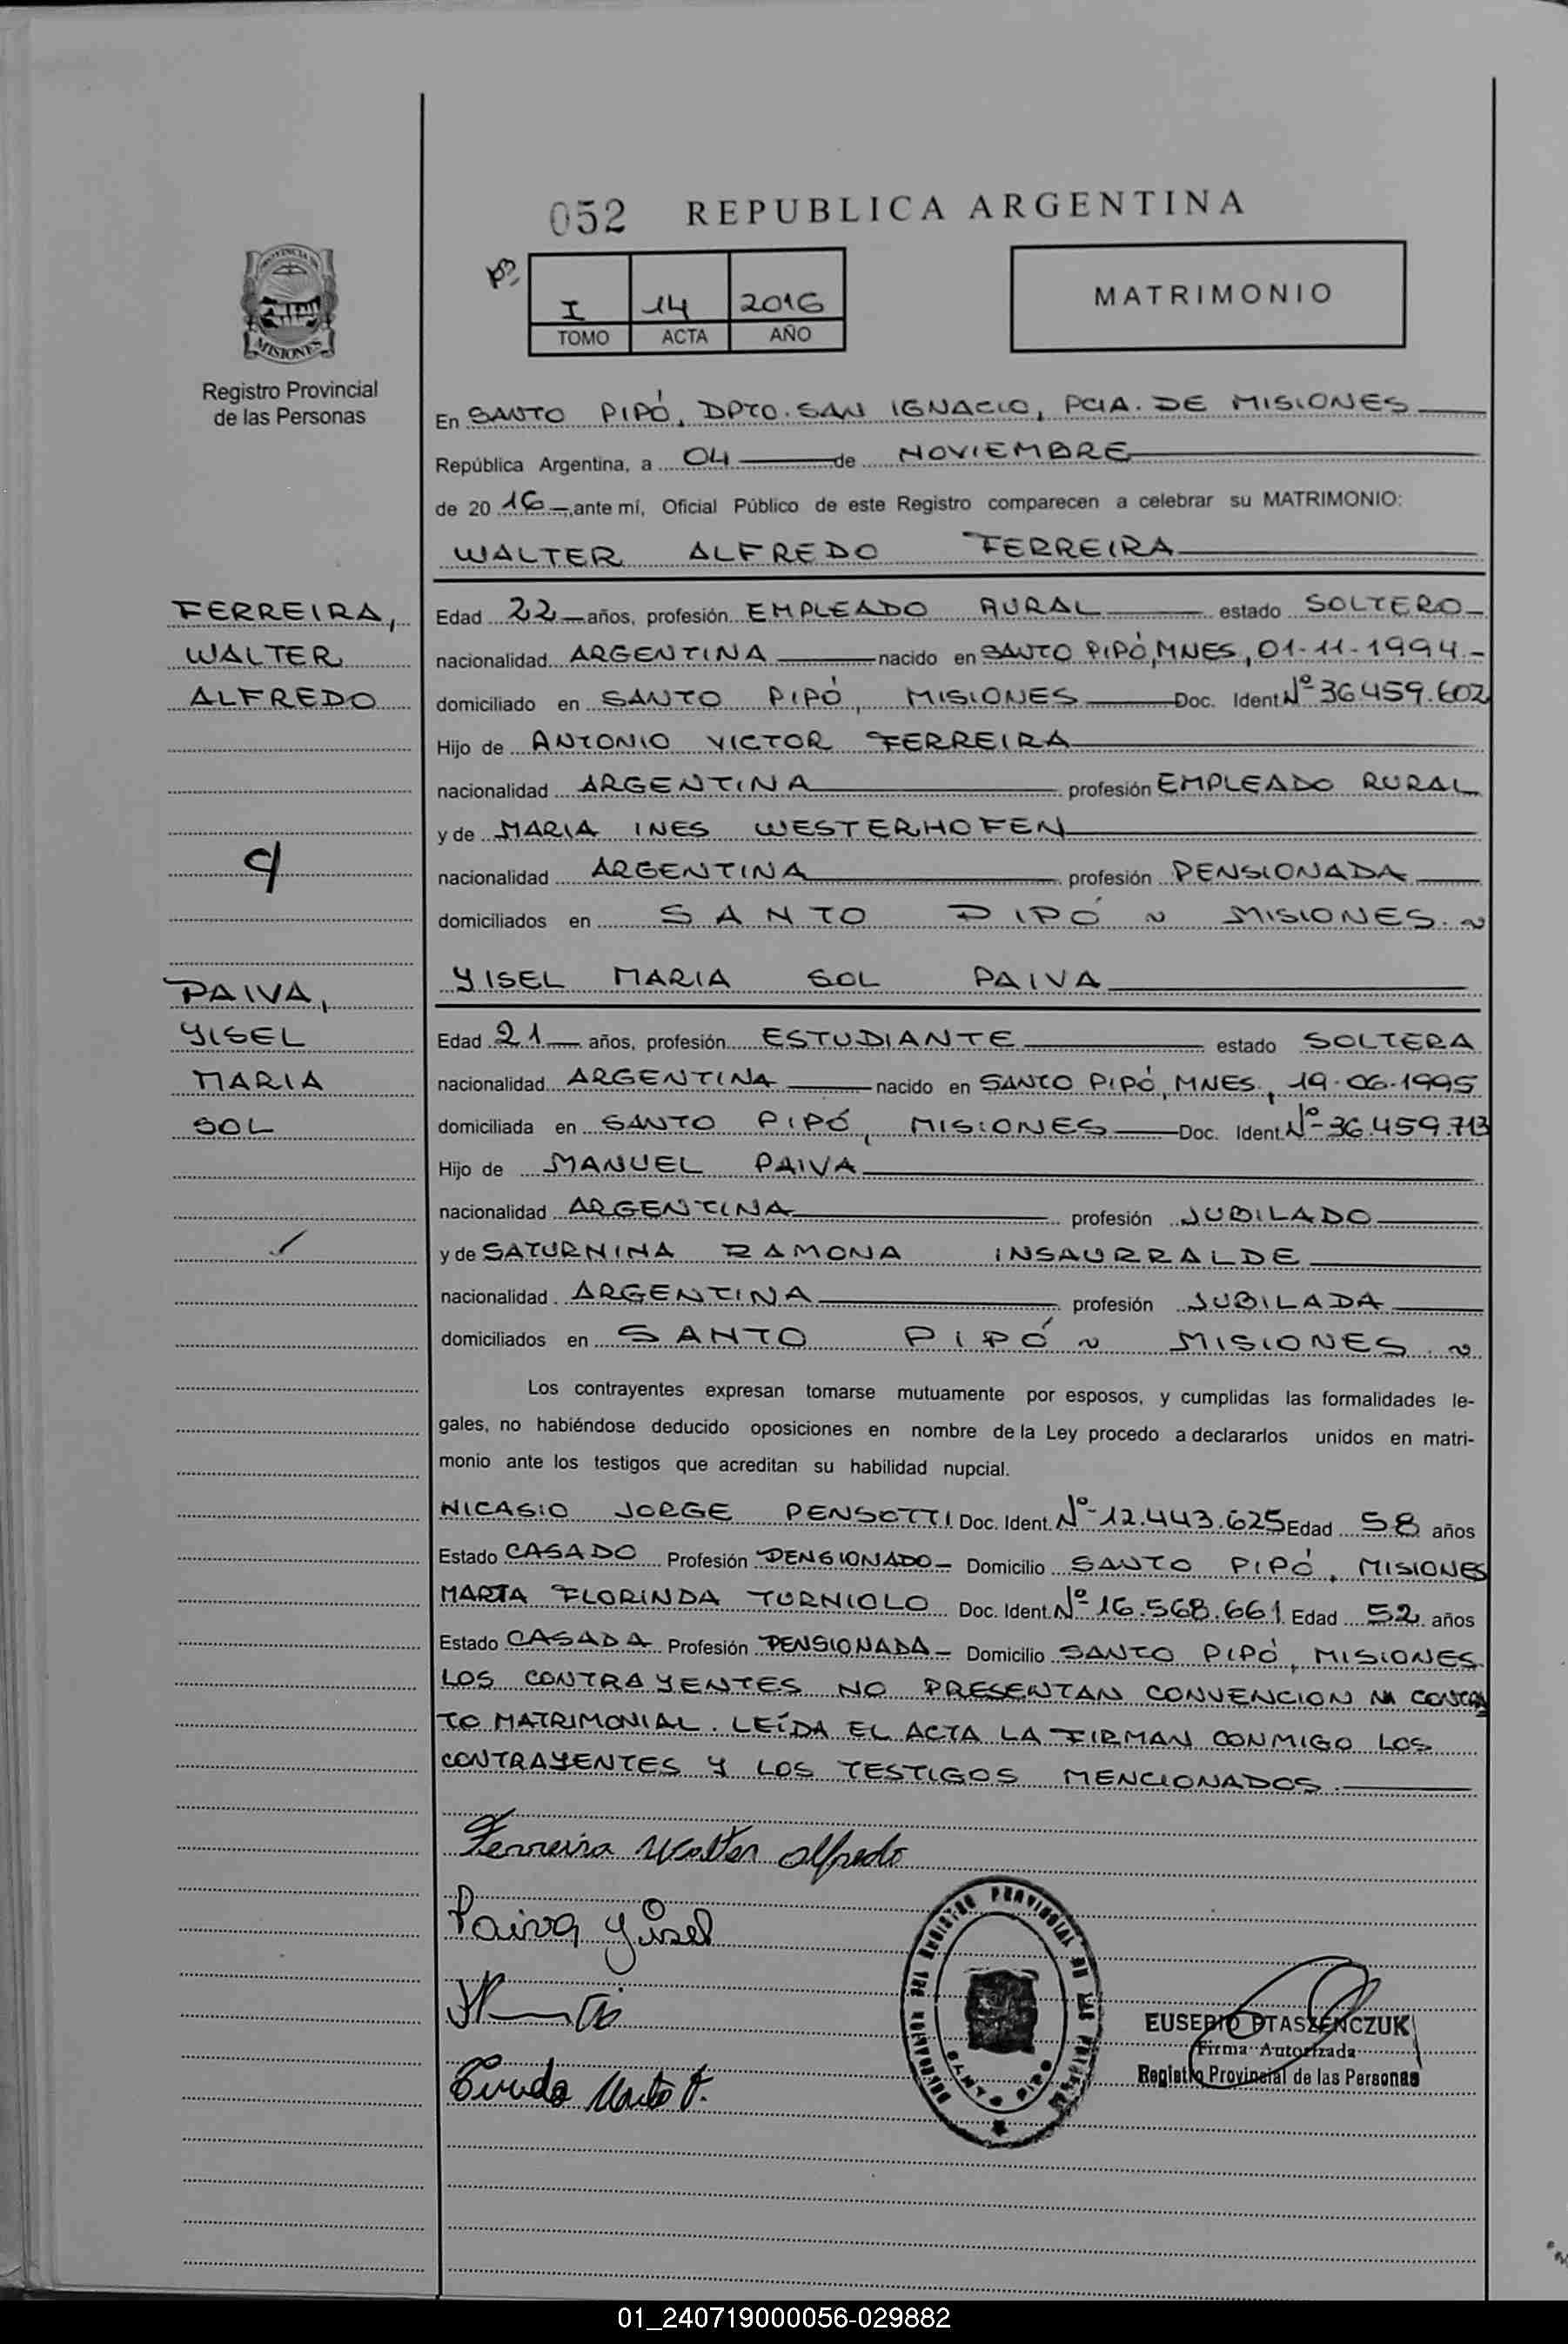 052 REPUBLICA ARGENTINA
PROVINCIA DE
MISIONES
Registro Provincial
de las Personas
I 14 2016
TOMO ACTA AÑO
MATRIMONIO
En SANTO PIPÓ, DPTO. SAN IGNACIO, PCIA. DE MISIONES
República Argentina, a 04 de NOVIEMBRE
de 20 16 , ante mí, Oficial Público de este Registro comparecen a celebrar su MATRIMONIO:
WALTER ALFREDO FERREIRA
FERREIRA,
WALTER
ALFREDO
Edad 22 años, profesión EMPLEADO RURAL estado SOLTERO
nacionalidad ARGENTINA nacido en SANTO PIPÓ, MNES, 01-11-1994.-
domiciliado en SANTO PIPÓ, MISIONES Doc. Ident. Nº 36.459.602
Hijo de ANTONIO VICTOR FERREIRA
nacionalidad ARGENTINA profesión EMPLEADO RURAL
y de MARIA INES WESTERHOFEN
nacionalidad ARGENTINA profesión PENSIONADA
domiciliados en SANTO PIPÓ ~ MISIONES. ~
YISEL MARIA SOL PAIVA
PAIVA,
YISEL
MARIA
SOL
Edad 21 años, profesión ESTUDIANTE estado SOLTERA
nacionalidad ARGENTINA nacido en SANTO PIPÓ, MNES., 19-06-1995
domiciliada en SANTO PIPÓ, MISIONES Doc. Ident. Nº 36.459.713
Hijo de MANUEL PAIVA
nacionalidad ARGENTINA profesión JUBILADO
y de SATURNINA RAMONA INSAURRALDE
nacionalidad ARGENTINA profesión JUBILADA
domiciliados en SANTO PIPÓ ~ MISIONES. ~
Los contrayentes expresan tomarse mutuamente por esposos, y cumplidas las formalidades le-
gales, no habiéndose deducido oposiciones en nombre de la Ley procedo a declararlos unidos en matri-
monio ante los testigos que acreditan su habilidad nupcial.
NICASIO JORGE PENSOTTI Doc. Ident. Nº 12.443.625 Edad 58 años
Estado CASADO Profesión PENSIONADO Domicilio SANTO PIPÓ, MISIONES
MARTA FLORINDA TURNIOLO Doc. Ident. Nº 16.568.661 Edad 52 años
Estado CASADA Profesión PENSIONADA Domicilio SANTO PIPÓ, MISIONES
LOS CONTRAYENTES NO PRESENTAN CONVENCION NI CONTRA
TO MATRIMONIAL. LEÍDA EL ACTA LA FIRMAN CONMIGO LOS
CONTRAYENTES Y LOS TESTIGOS MENCIONADOS.
Ferreira Walter Alfredo
Paiva Yisel
DEL REGISTRO PROVINCIAL DE LAS PERSONAS
SANTO PIPO
EUSEBIO PTASZENCZUK
Firma Autorizada
Registro Provincial de las Personas
01_240719000056-029882